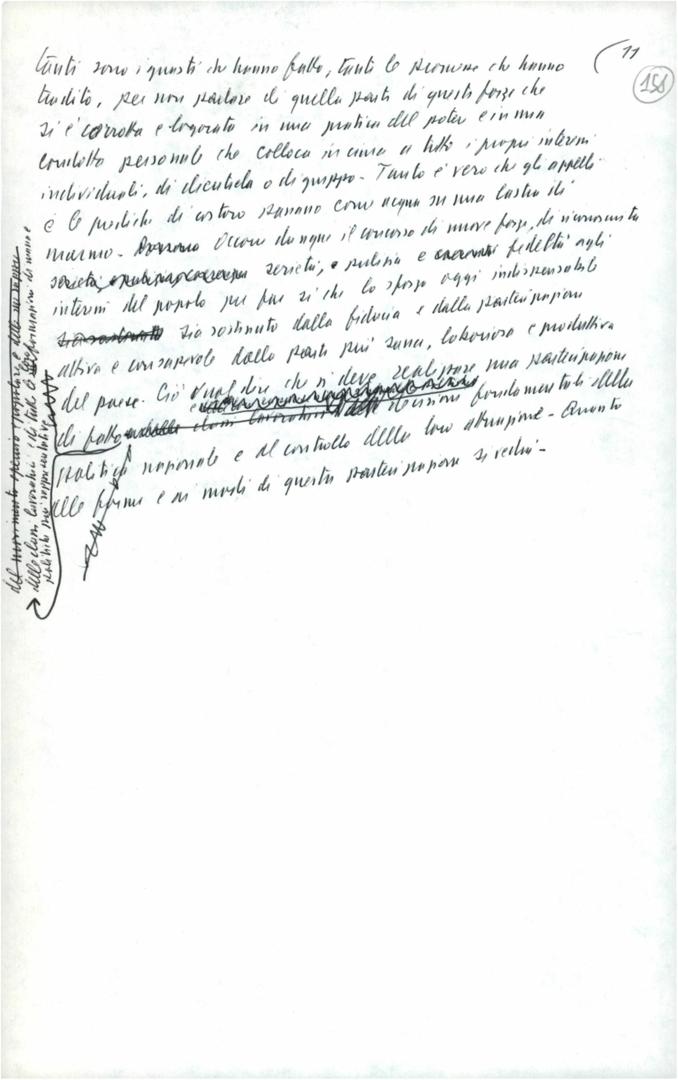 11
158
tanti sono i guasti che hanno fatto, tanti le promesse che hanno
tradito, per non parlare di quella parte di queste forze che
si è corrotta e logorata in una pratica del potere e in una
condotta personale che colloca in cima a tutto i propri interessi
individuali, di clientela o di gruppo. Tanto è vero che gli appelli
e le prediche di costoro passano come acqua su una lastra di
marmo. Occorre dunque il concorso di nuove forze, di riconosciuta
serietà, e pulizia e fedeltà agli
interessi del popolo per far sì che lo sforzo oggi indispensabile
sia sostenuto dalla fiducia e dalla partecipazione
attiva e consapevole della parte più sana, laboriosa e produttiva
del paese. Ciò vuol dire che si deve realizzare una partecipazione
di fatto decisioni fondamentali della
politica nazionale e al controllo della loro attuazione. Quanto
alle forme e ai modi di questa partecipazione si vedrà.
del movimento operaio e popolare e delle sue
delle classi lavoratrici e di tutte le formazioni da
politiche sue rappresentative